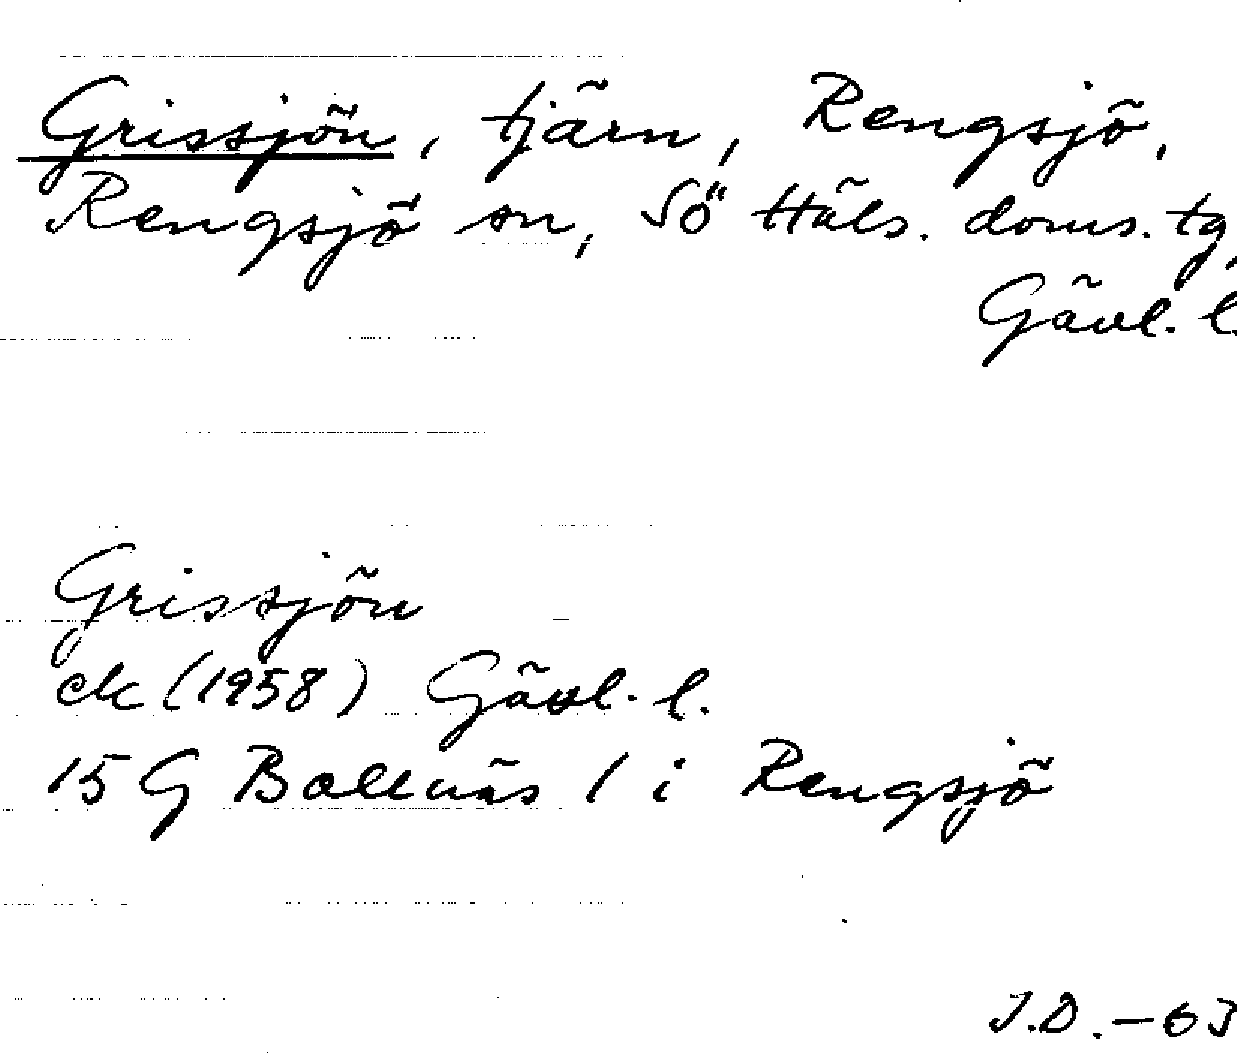 Grissjön, tjärn, Rengsjö,
Rengsjö sn, Sö Häls. doms. tg,
Gävl. l.
Grissjön
ek (1958) Gävl. l.
15 G Bollnäs 1 i Rengsjö
J.D. - 63